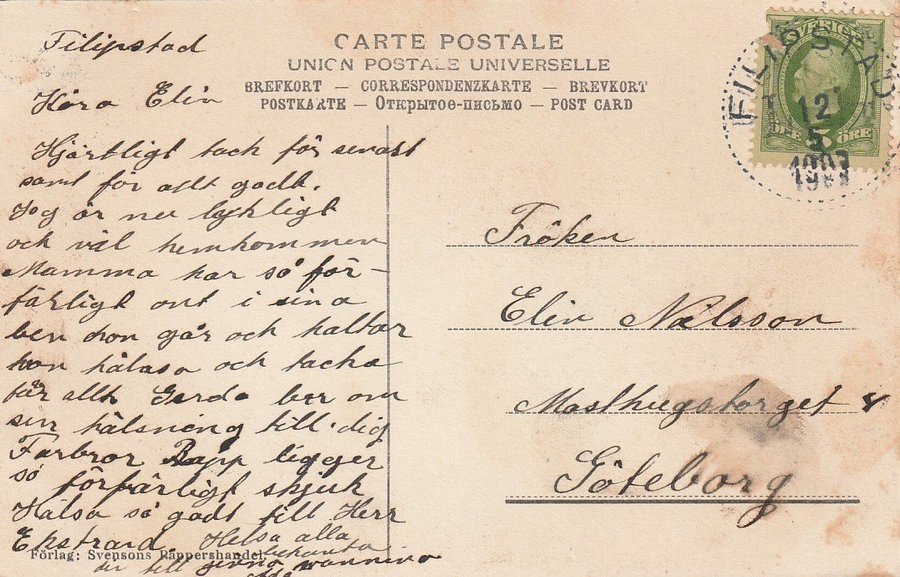 Filipstad
CARTE POSTALE
UNION POSTALE UNIVERSELLE
BREFKORT — CORRESPONDENZKARTE — BREVKORT
POSTKARTE — Открытое-письмо — POST CARD
SVERIGE
ÖRE
FILIPSTAD
12
5
Kära Elin
Hjärtligt tack för senast
samt för allt godt.
Jag är nu lyckligt
och väl hemkommen
Mamma har så för-
färligt ont i sina
ben hon går och haltar
hon hälsa och tacka
får allt Gerda ber om
sin hälsning till dig
Farbror Rapp ligger
så förfärligt skjuk
Hälsa så godt till Herr
Ekstrand. Helsa alla
bekanta
till
Fröken
Elin Nilsson
Masthugstorget 8
Göteborg
Förlag: Svensons Pappershandel.